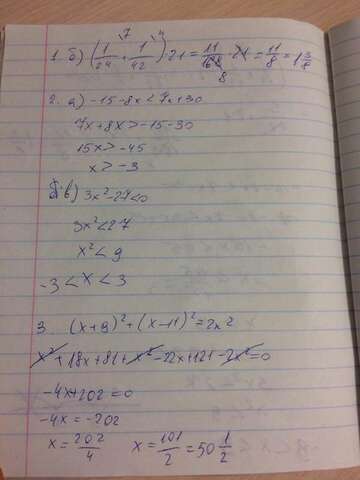 7 4
1. б) (1/24 + 1/42) · 21 = 11/168 · 21 = 11/8 = 1 3/8
8
2. а) -15-8x<7x+30
7x+8x>-15-30
15x>-45
x>-3
в) 3x²-27<0
3x²<27
x²<9
-3<x<3
3. (x+9)²+(x-11)²=2x²
x²+18x+81+x²-22x+121-2x²=0
-4x+202=0
-4x=-202
x=202/4 x=101/2=50 1/2